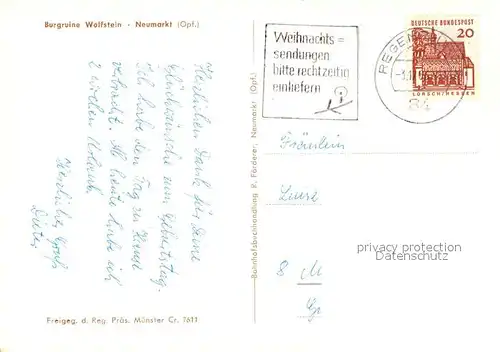 Burgruine Wolfstein - Neumarkt (Opf.)
Herzlichen Dank für Deine
Glückwünsche zum Geburtstag.
Ich habe den Tag zu Hause
verbracht. Ab heute habe ich
2 Wochen Urlaub.
Herzliche Grüße
Dieter
Freigeg. d. Reg. Präs. Münster Cr. 7611
Bahnhofsbuchhandlung R. Förderer, Neumarkt (Opf.)
Weihnachts=
sendungen
bitte rechtzeitig
einliefern
REGEN
84
DEUTSCHE BUNDESPOST
20
LORSCH/HESSEN
Fräulein
8 M
privacy protection
watermark